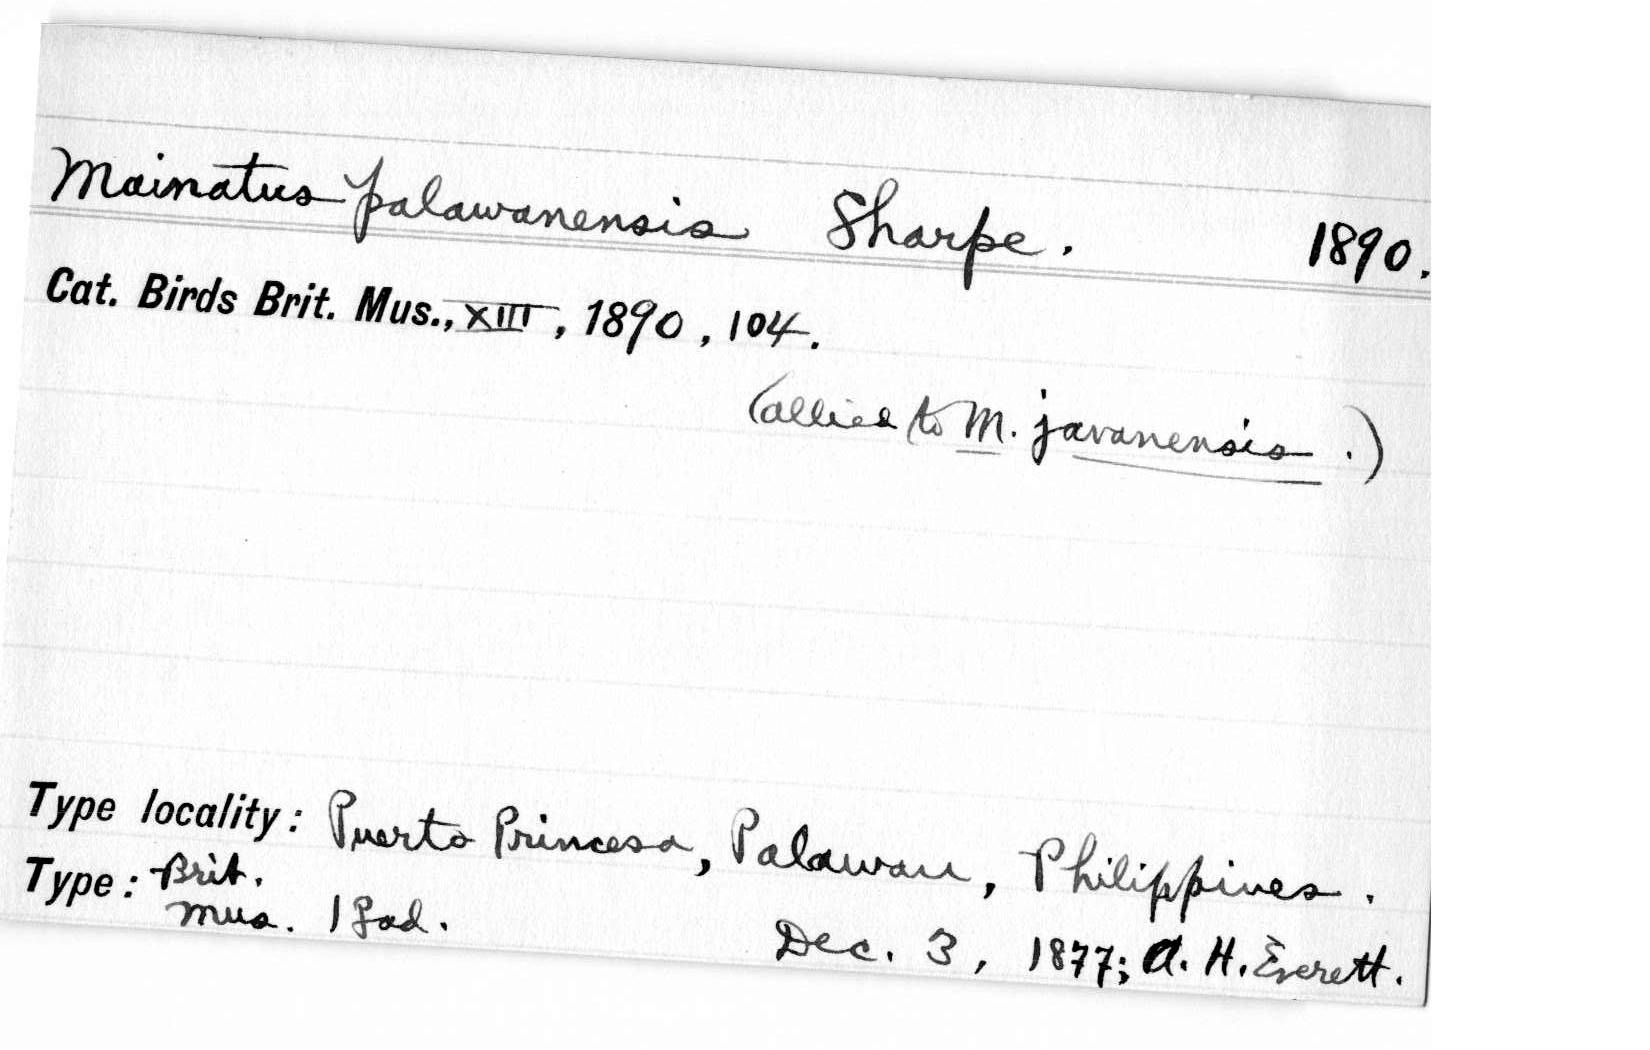 Mainatus palawanensis Sharpe. 1890.
Cat. Birds Brit. Mus., XIII, 1890, 104.
(allied to M. javanensis.)
Type locality: Puerto Princesa, Palawan, Philippines.
Type: Brit. Mus. 1 ♀ ad. Dec. 3, 1877; A. H. Everett.